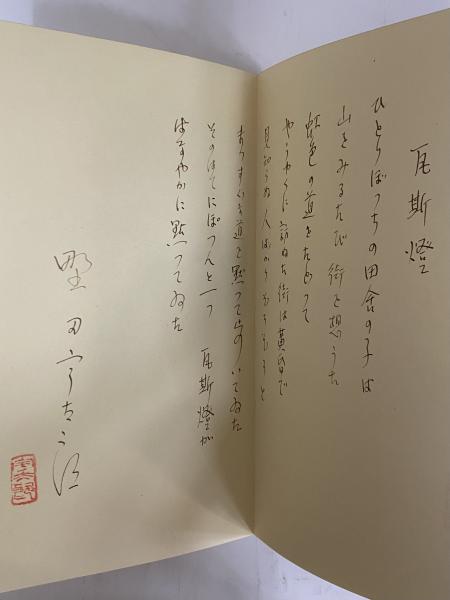 瓦斯燈
ひとりぼつちの田舎の子は
山をみるたび街を想うた
虹色の道をたどつて
やうやくに訪ねた街は黄昏で
見知らぬ人ばかりぞろぞろと
まつすぐな道を黙つて歩いてゐた
そのはてにぽつんと一つ 瓦斯燈が
はなやかに點つてゐた
野田宇太郎